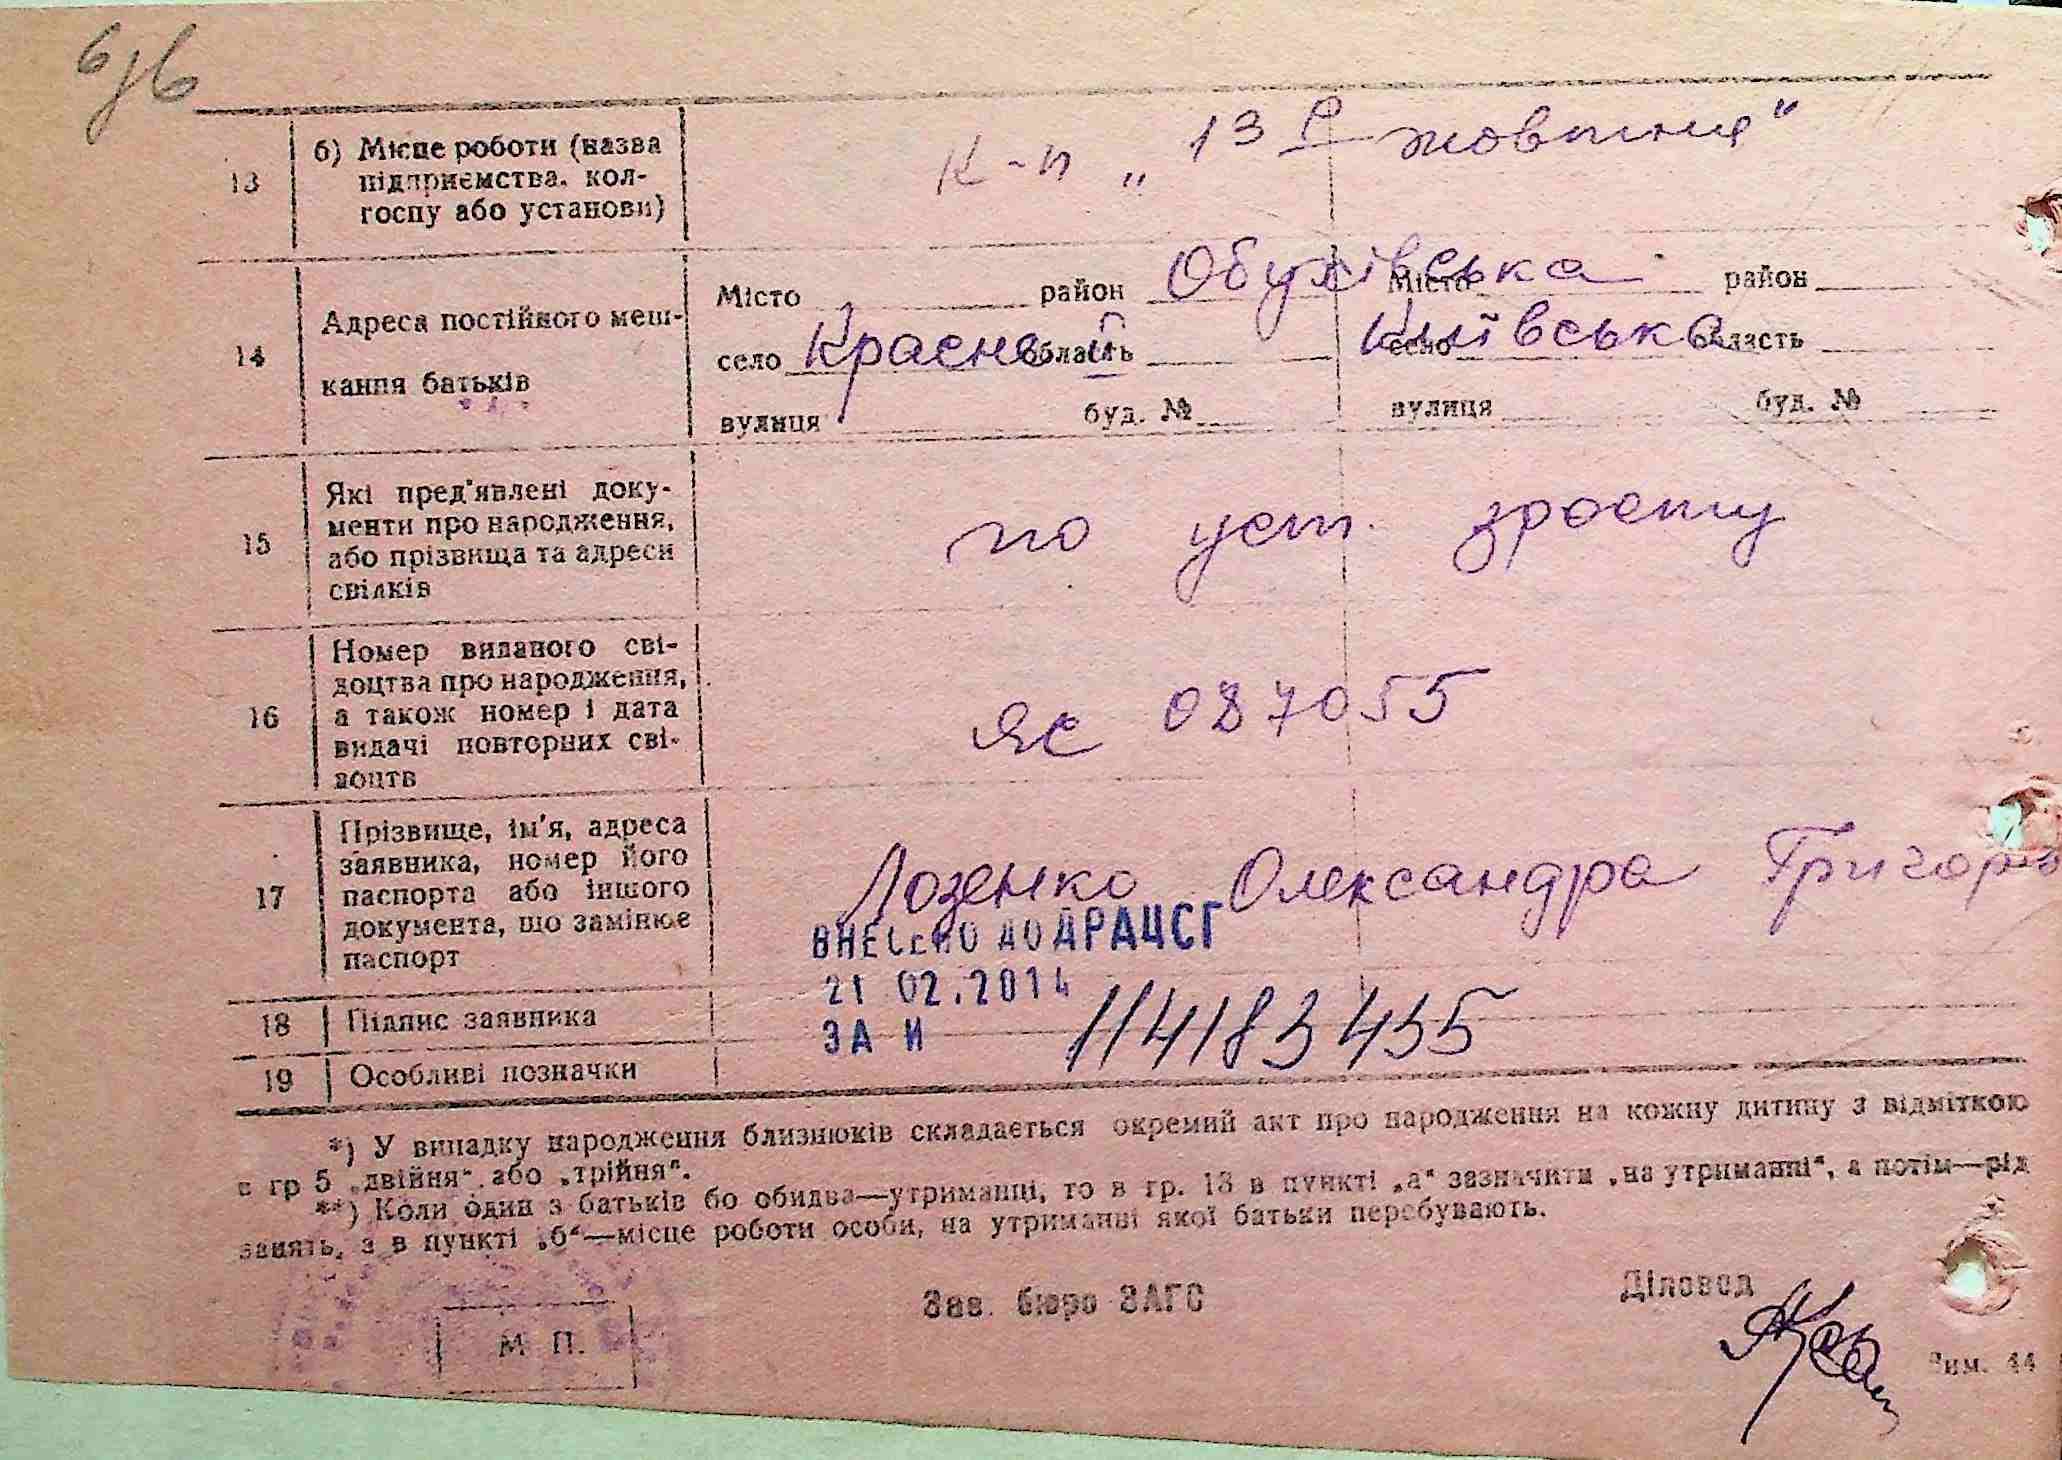 6/6
13 б) Місце роботи (назва
підприємства, кол-
госпу або установи)
к-п „13 Р жовтня“
14 Адреса постійного меш-
кання батьків
Місто район Обухівська Місто район
село Красной область Київська село область
вулиця буд. № вулиця буд. №
15 Які пред'явлені доку-
менти про народження,
або прізвища та адреси
свідків
по уст. зросту
16 Номер виданого сві-
доцтва про народження,
а також номер і дата
видачі повторних сві-
доцтв
ЯС 087055
17 Прізвище, ім'я, адреса
заявника, номер його
паспорта або іншого
документа, що замінює
паспорт
Лозенко Олександра Григорів
ВНЕСЕНО ДО ДРАЦСГ
21 02.2014
ЗА И 114183455
18 Підпис заявника
19 Особливі позначки
*) У випадку народження близнюків складається окремий акт про народження на кожну дитину з відміткою
в гр 5 „двійня“ або „трійня“.
**) Коли один з батьків бо обидва—утриманці, то в гр. 13 в пункті „а“ зазначити „на утриманні“, а потім—рід
занять, з в пункті „б“—місце роботи особи, на утриманні якої батьки перебувають.
Зав. бюро ЗАГС
Діловод
М П.
Зим. 44